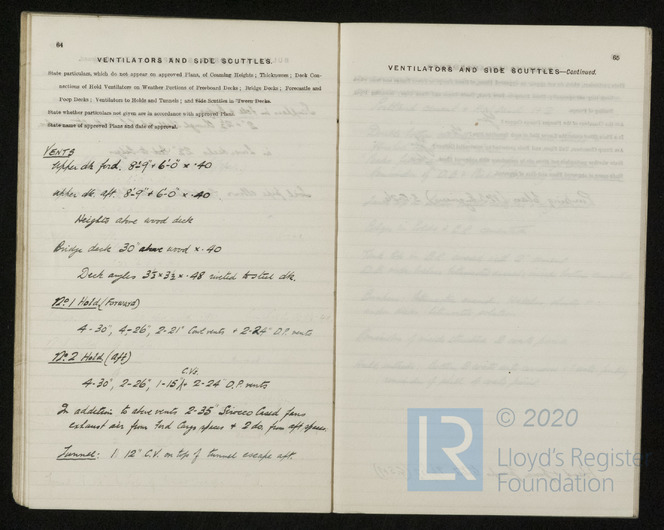 64
VENTILATORS AND SIDE SCUTTLES.
State particulars, which do not appear on approved Plans, of Coaming Heights; Thicknesses; Deck Con-
nections of Hold Ventilators on Weather Portions of Freeboard Decks; Bridge Decks; Forecastle and
Poop Decks; Ventilators to Holds and Tunnels; and Side Scuttles in 'Tween Decks.
State whether particulars not given are in accordance with approved Plans.
State name of approved Plans and date of approval.
VENTS
Upper dk ford. 8'-9" + 6'-0" × ·40
upper dk. aft. 8'-9" + 6'-0" × ·40
Heights above wood deck
Bridge deck 30" above wood × ·40
Deck angles 3½ × 3½ × ·48 riveted to steel dk.
No. 1 Hold (Forward)
4-30", 4-26", 2-21" Cowl vents + 2-24" D.P. vents
No. 2 Hold (aft)
C.Vs.
4-30", 2-26", 1-15" + 2-24" D.P. vents
In addition to above vents 2-35" Sirocco Cased fans
exhaust air from Ford Cargo spaces + 2 do. from aft spaces.
Tunnel: 1 12" C.V. on top of tunnel escape aft.
65
VENTILATORS AND SIDE SCUTTLES—Continued.
© 2020
LR
Lloyd's Register
Foundation